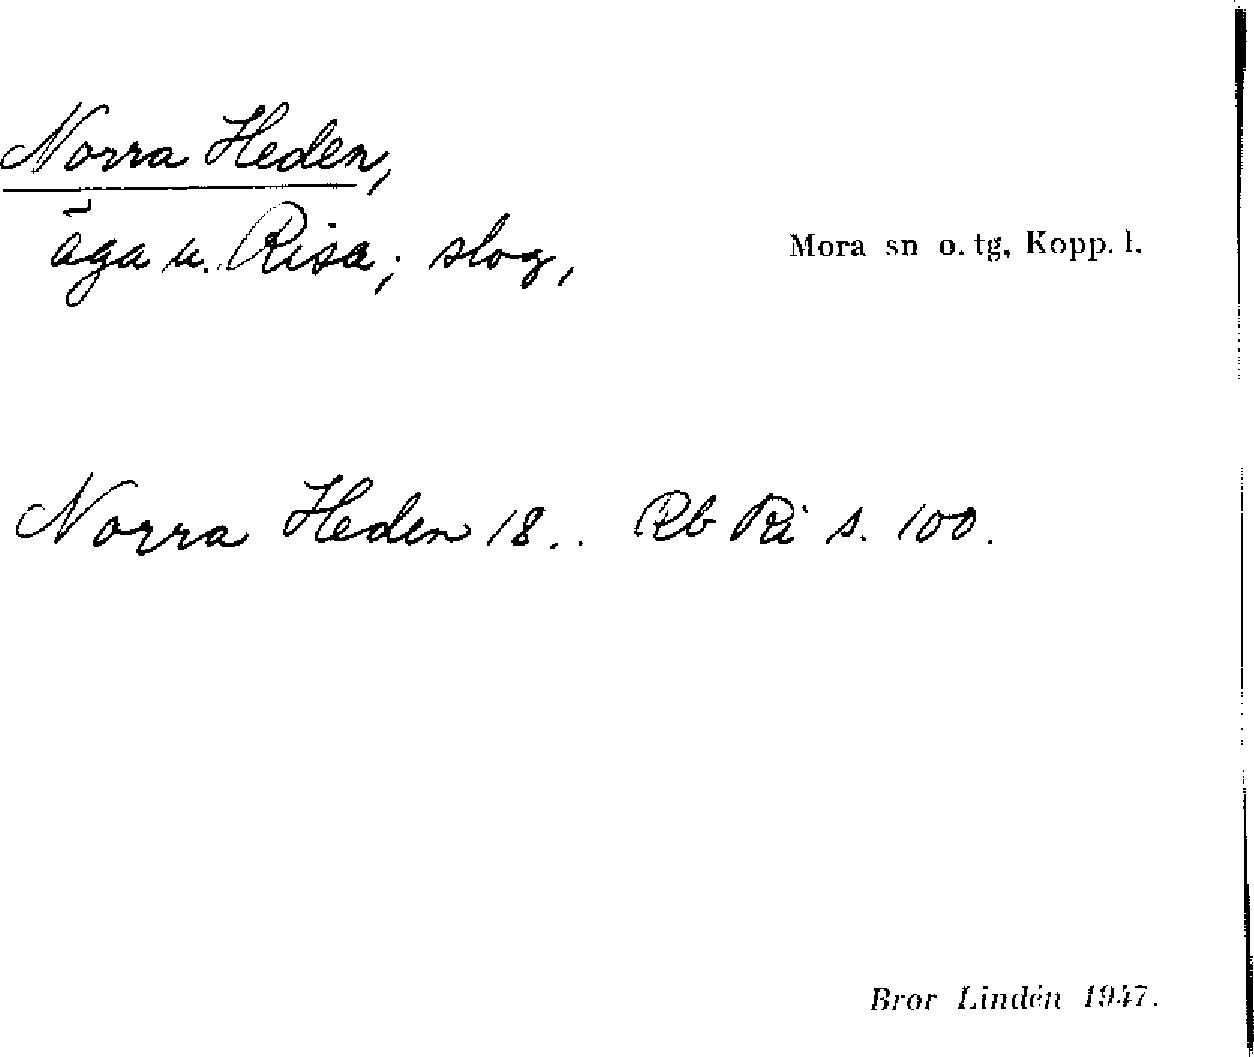 Norra Heden,
äga u. Risa; slog,
Mora sn o. tg, Kopp. l.
Norra Heden 18.. Rb Ri s. 100.
Bror Lindén 1947.